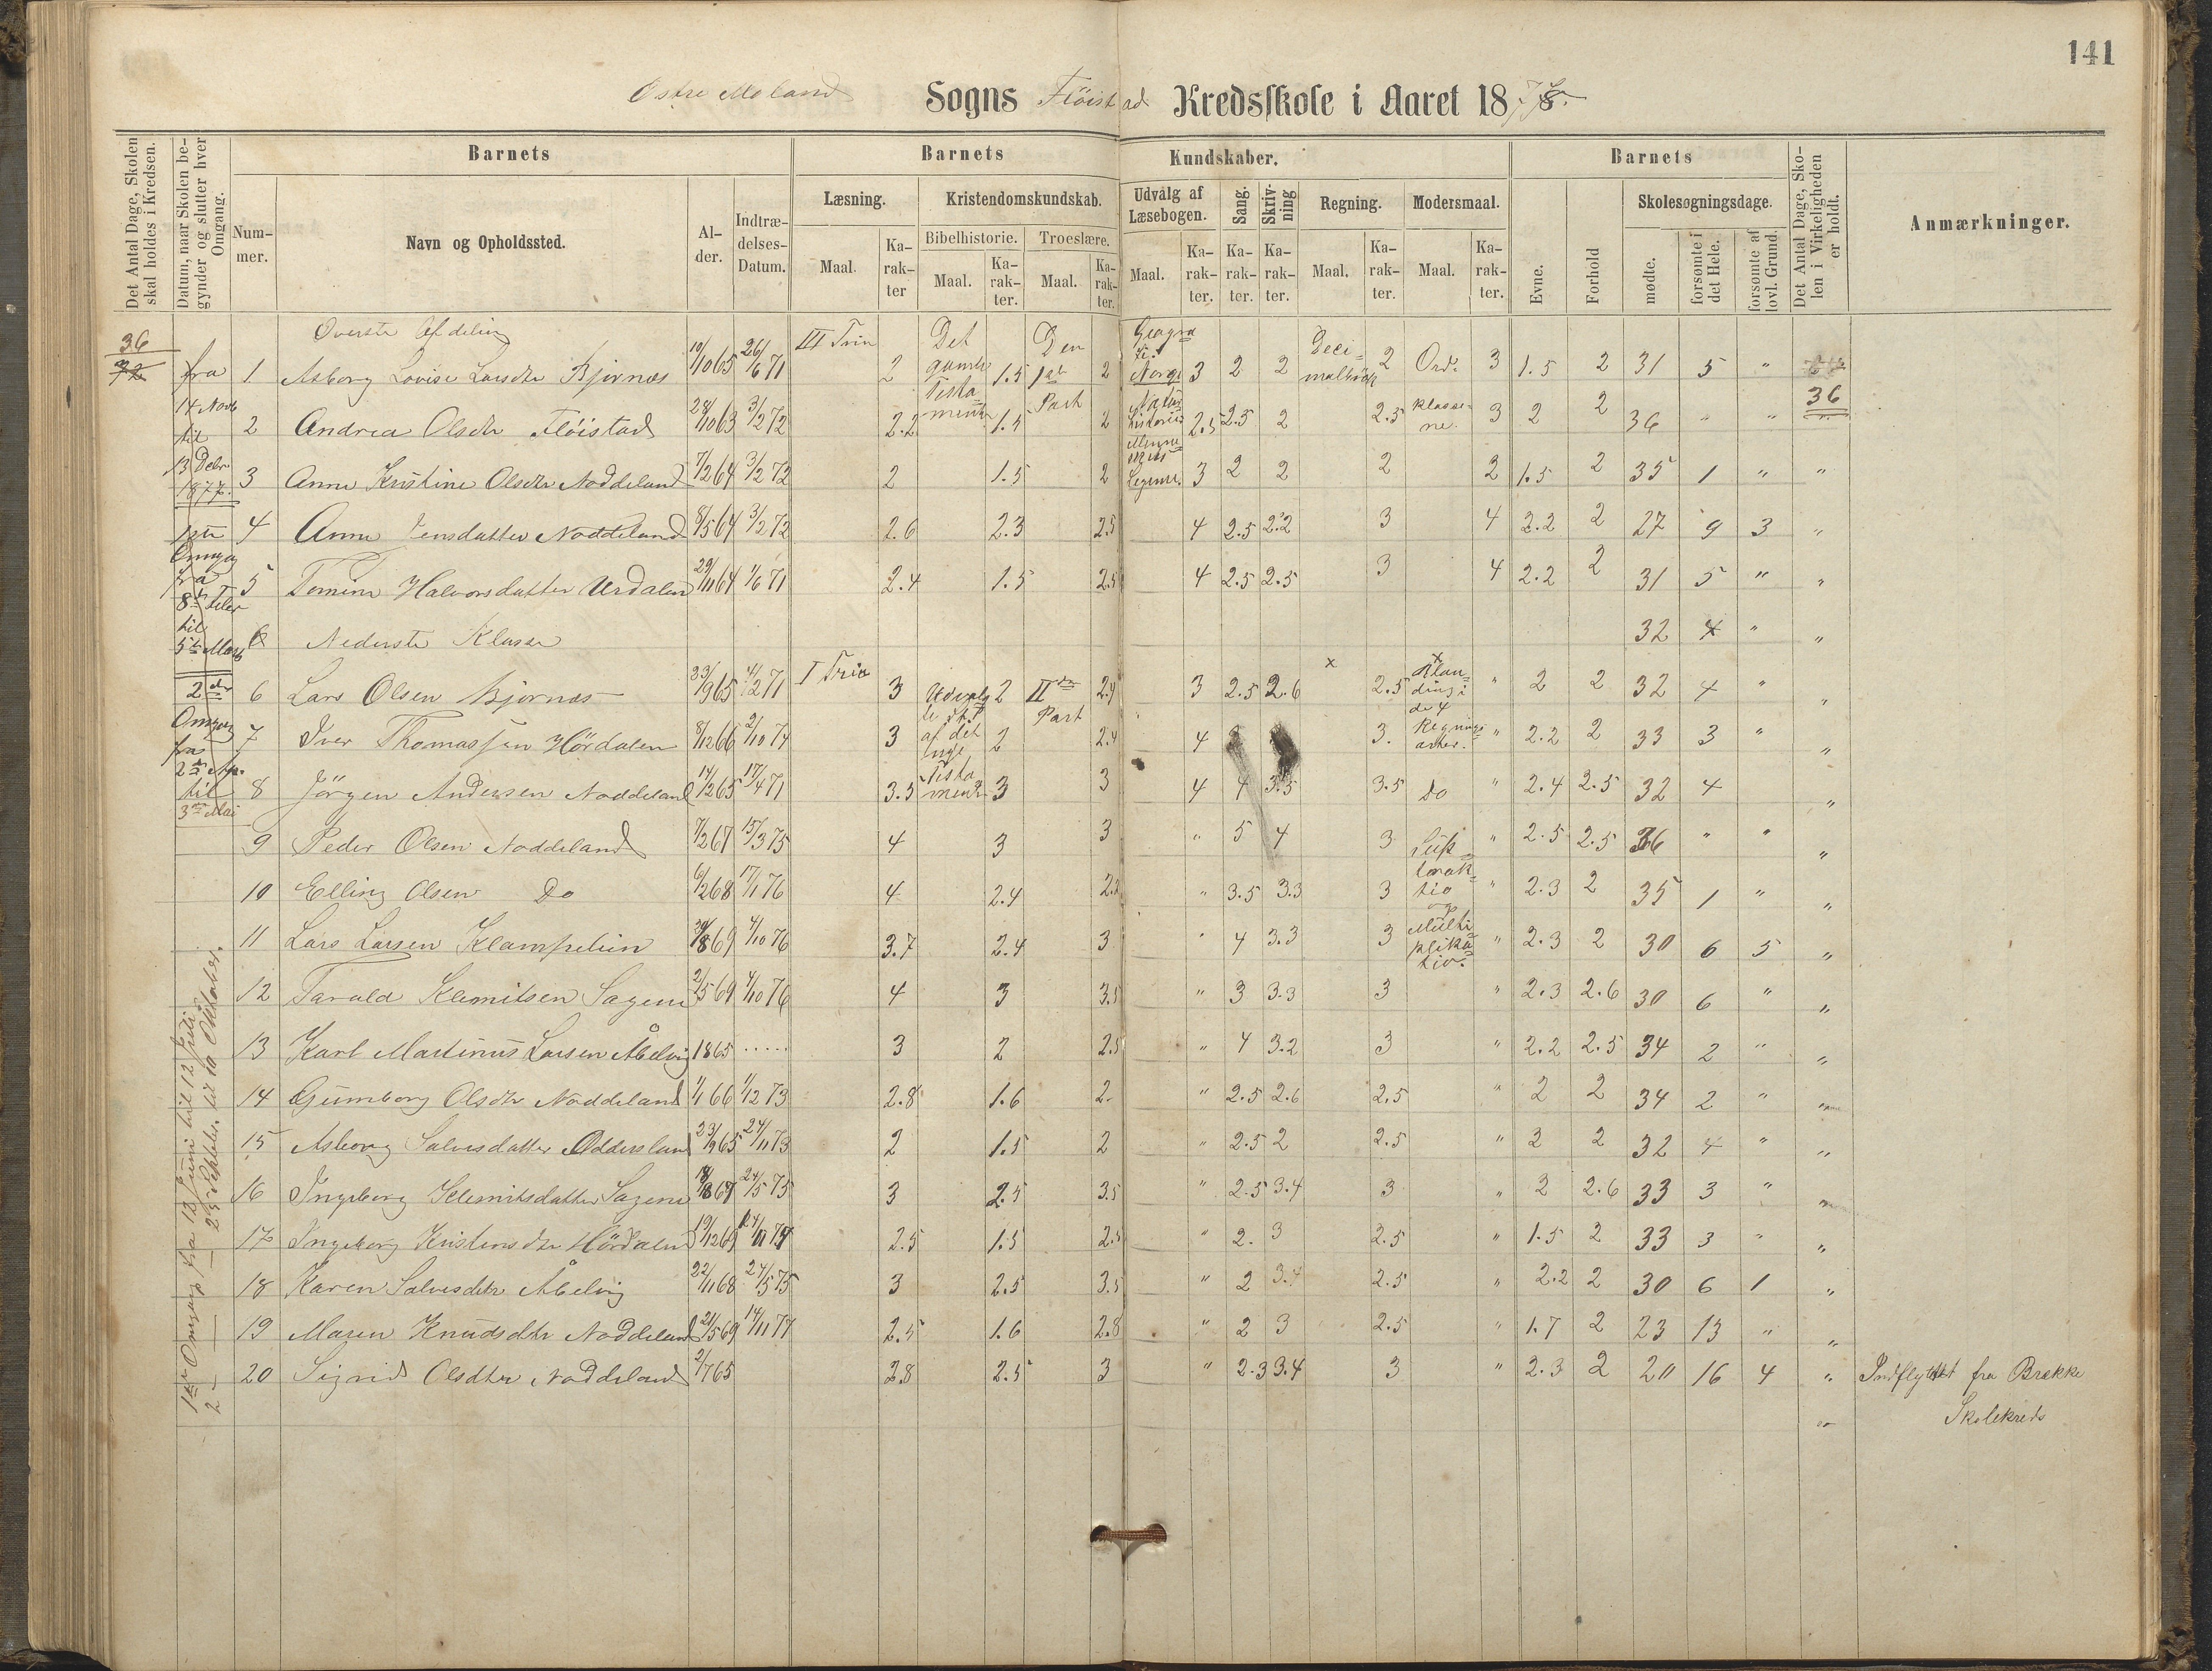 141
Østre Moland Sogns Flöistad Kredsskole i Aaret 1878.
Det Antal Dage, Skolen skal holdes i Kredsen.
Datum, naar Skolen begynder og slutter hver Omgang.
Barnets
Barnets
Kundskaber.
Barnets
Det Antal Dage, Skolen i Virkeligheden er holdt.
Anmærkninger.
Nummer.
Navn og Opholdssted.
Alder.
Indtrædelses-Datum.
Læsning.
Kristendomskundskab.
Udvalg af Læsebogen.
Sang.
Skrivning
Regning.
Modersmaal.
Evne.
Forhold
Skolesøgningsdage.
Bibelhistorie.
Troeslære.
Maal.
Karakter
Maal.
Karakter.
Maal.
Karakter.
Maal.
Karakter.
Karakter.
Karakter.
Maal.
Karakter.
Maal.
Karakter.
mødte.
forsømte i det Hele.
forsømte af lovl. Grund.
36
72
fra
14 Novb
til
13 Debr.
1877.
Omgang
fra
8de Febr
til
5te Marts
2den
Omgang
fra
2den Apr.
til
3die Mai
1ste Omgang fra 13 Juni til 12 Juli
2 — — 25 Septbr. til 10 Oktober.
Øverste Afdeling
III Trin
Det gamle Testamente
Den 1ste Part
Geografi: Norge
Naturhistorie:
Menneskets Legeme.
Decimalbrök
Ordklasserne.
1 Asborg Lovise Larsdtr Bjornæs 19/10 65 26/6 71 2 1.5 2 3 2 2 2 3 1.5 2 31 5 "
36
2 Andrea Olsdtr Flöistad 28/10 63 3/2 72 2.2 1.5 2 2.5 2.5 2 2.5 3 2 2 36 " " "
3 Anne Kristine Olsdtr Noddeland 7/2 64 3/2 72 2 1.5 2 3 2 2 2 2 1.5 2 35 1 " "
4 Anne Jensdatter Noddeland 8/5 64 3/2 72 2.6 2.3 2.5 4 2.5 2.2 3 4 2.2 2 27 9 3 "
5 Tomine Halvorsdatter Urdalen 29/11 64 1/6 71 2.4 1.5 2.5 4 2.5 2.5 3 4 2.2 2 31 5 " "
6 Nederste Klasse 32 4 " "
I Trin
Udvalgte St. af det nye Testamente
IIden Part
x
x
Blanding i de 4 Regningsarter.
6 Lars Olsen Bjornæs 23/9 65 4/2 71 3 2 2.4 3 2.5 2.6 2.5 " 2 2 32 4 " "
7 Iver Thomassen Hördalen 8/12 66 2/10 74 3 2 2.4 4 3. " 2.2 2 33 3 " "
8 Jörgen Andersen Noddeland 14/12 65 17/4 71 3.5 3 3 4 4 3.5 3.5 Do " 2.4 2.5 32 4 "
9 Peder Olsen Noddeland 7/2 67 15/3 75 4 3 3 " 5 4 3 " 2.5 2.5 36 " " "
Subtraktio og Multiplikation.
10 Elling Olsen Do 6/2 68 17/1 76 4 2.4 " 3.5 3.3 3 " 2.3 2 35 1 " "
11 Lars Larsen Klampelien 8 69 4/10 76 3.7 2.4 3 " 4 3.3 3 " 2.3 2 30 6 5 "
12 Tarald Klemitsen Sagene 2/5 69 4/10 76 4 3 3.5 " 3 3.3 3 " 2.3 2.6 30 6 " "
13 Karl Martinus Larsen Åbelvig 1865 ..... 3 2 2.5 " 4 3.2 3 " 2.2 2.5 34 2 " "
14 Gunnborg Olsdtr Noddeland 1/1 66 1/12 73 2.8 1.6 2. " 2.5 2.6 2.5 " 2 2 34 2 " "
15 Asborg Salvesdatter Oddersland 23/9 65 24/11 73 2 1.5 2 " 2.5 2 2.5 " 2 2 32 4 " "
16 Ingeborg Klemitsdatter Sagene 18/8 67 24/5 75 3 2.5 3.5 " 2.5 3.4 3 " 2 2.6 33 3 " "
17 Ingeborg Kristensdtr Hördalen 19/12 69 74 2.5 1.5 2.5 " 2. 3 2.5 " 1.5 2 33 3 " "
18 Karen Salvesdtr Åbelvig 22/11 68 24/5 75 3 2.5 3.5 " 2 3.4 2.5 " 2.2 2 30 6 1 "
19 Maren Knudsdtr Noddeland 21/5 69 14/11 77 2.5 1.6 2.8 " 2 3 2.5 " 1.7 2 23 13 " "
20 Sigrid Olsdtr Noddeland 2/7 65 2.8 2.5 3 " 2.3 3.4 3 " 2.3 2 20 16 4 " Indflyttet fra Brekke Skolekreds